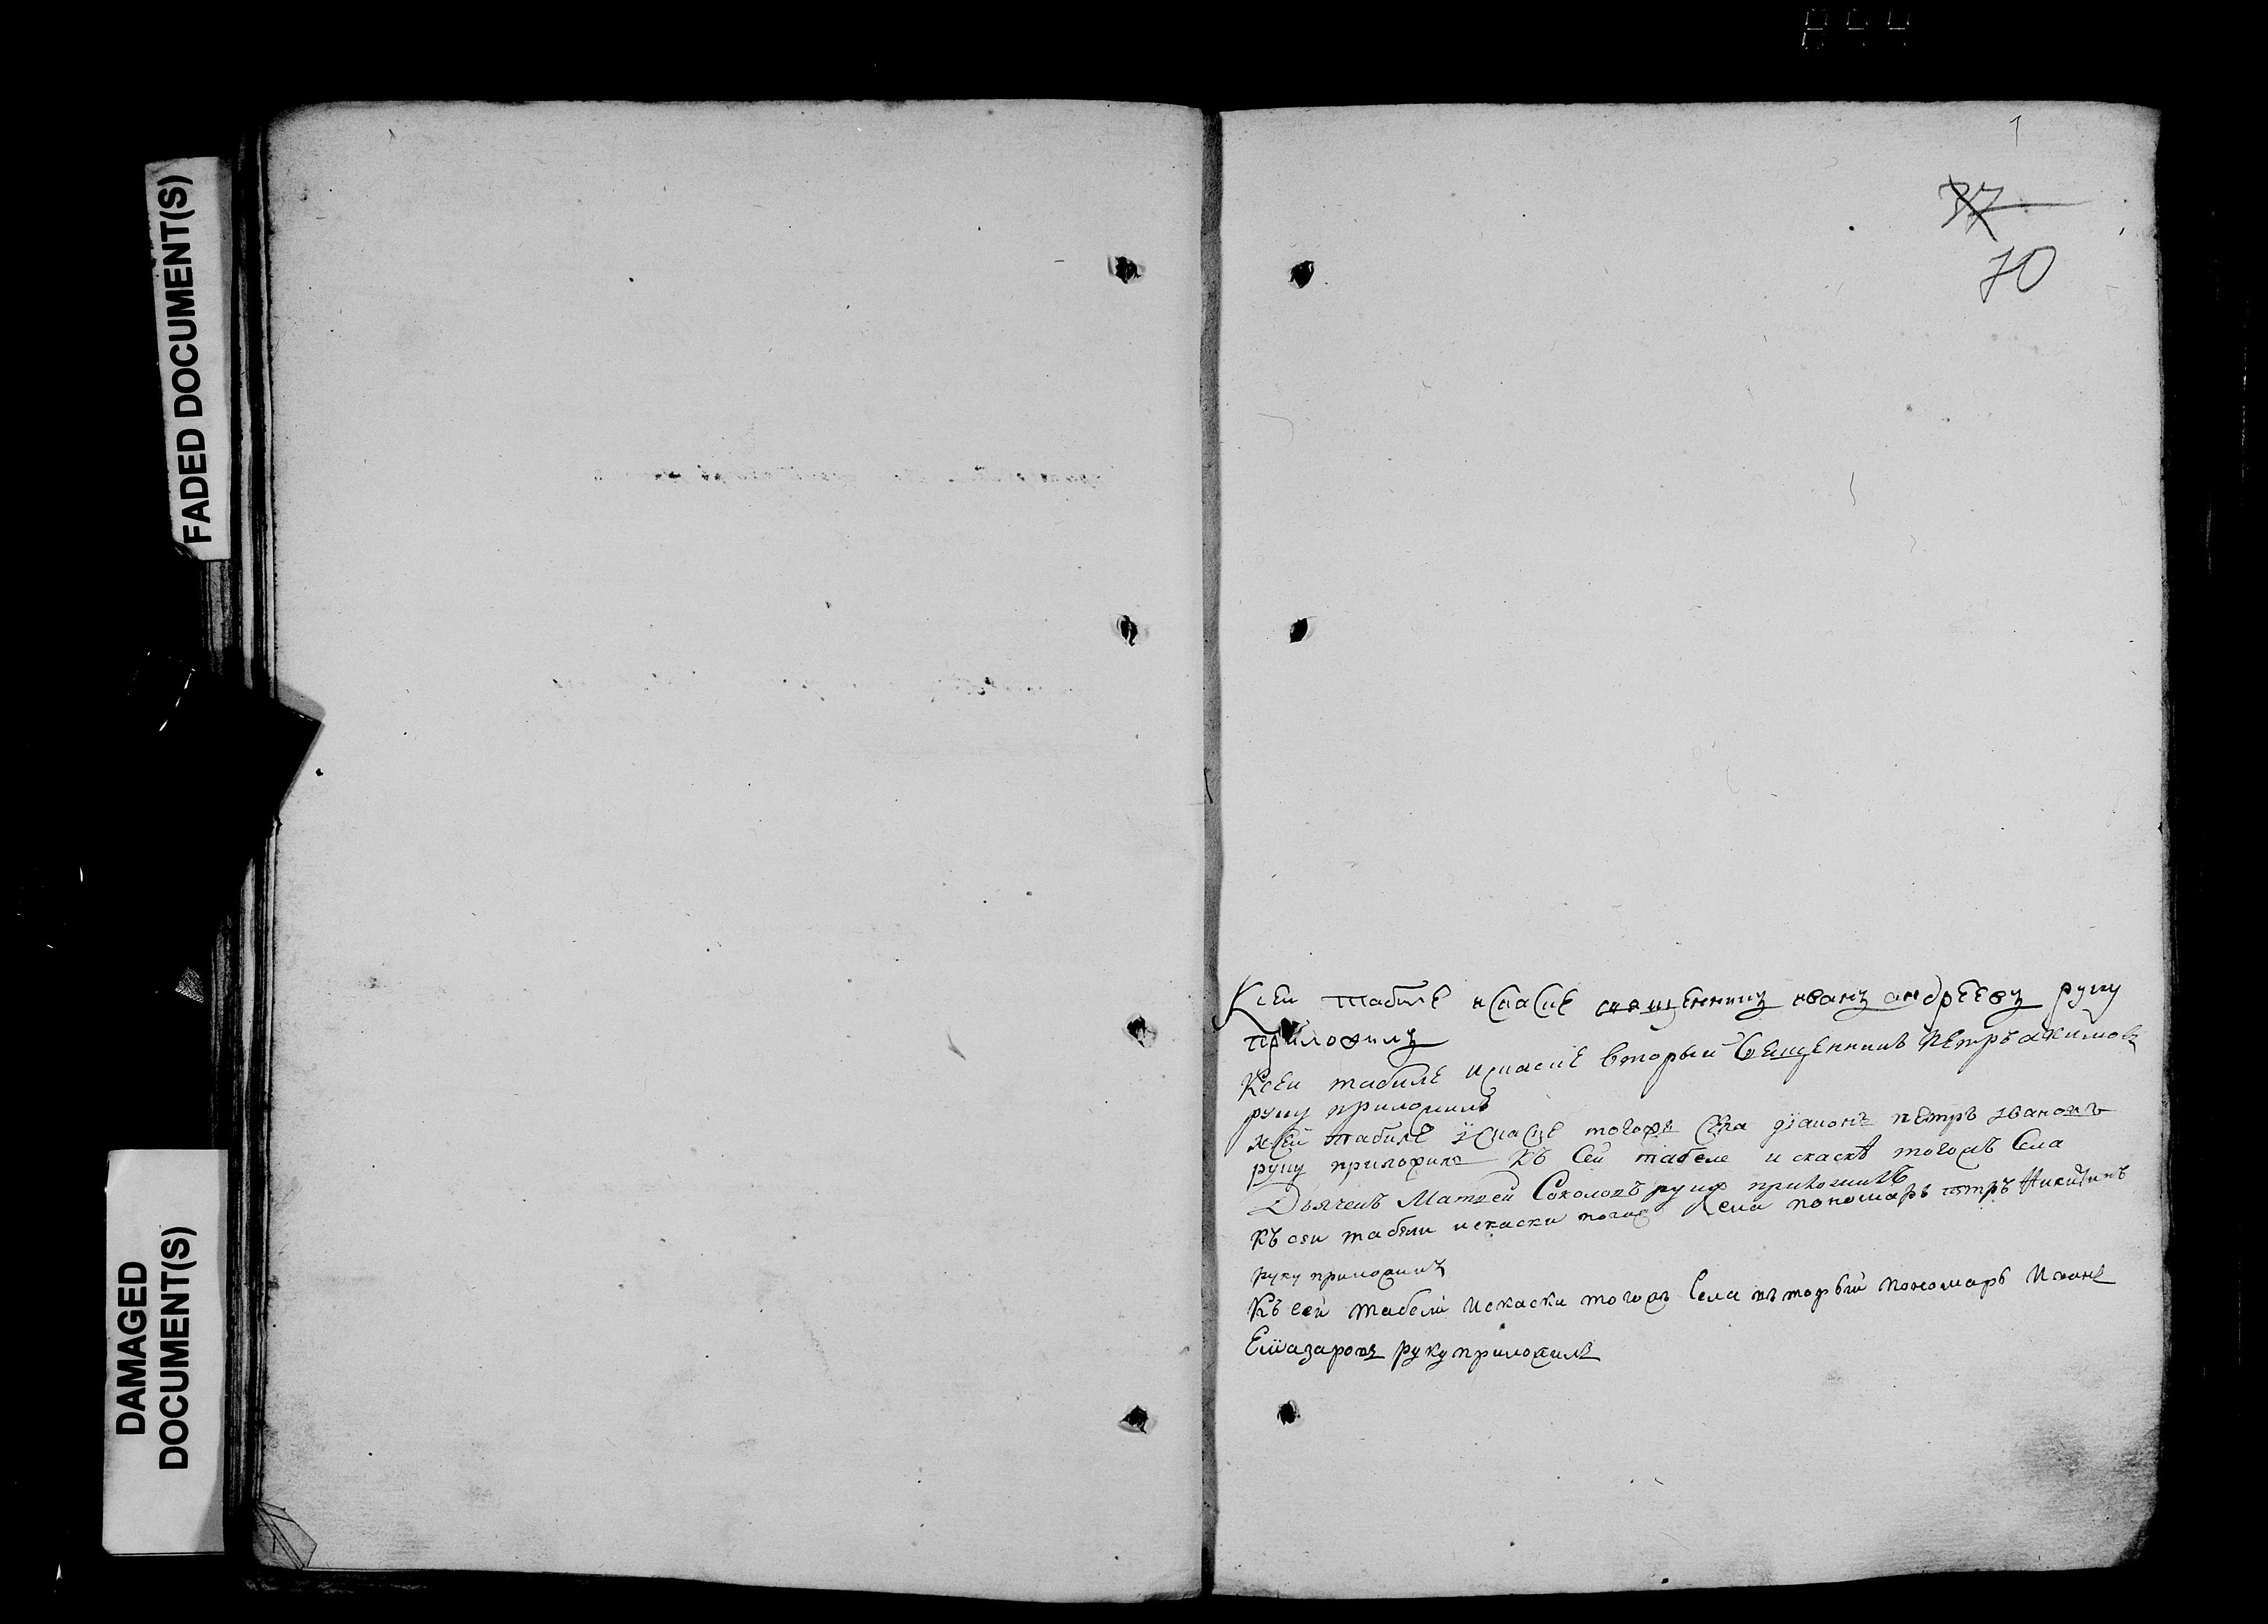 FADED DOCUMENT(S)
DAMAGED
DOCUMENT(S)
1
37
70
К сеи табиле и скаске священникъ иванъ андрѣевъ руку
приложилъ
К сеи табиле и скаске вторыи священникъ петръ акимовъ
руку приложилъ
к сей табиле ї скаске тогожъ села дїаконъ петръ ївановъ
руку приложилъ Къ сей табеле и скаскѣ тогожъ села
Дьячекъ Матвей Соколовъ руку приложилъ
Къ сеи табели и скаски тогожъ села пономарь петръ Никитинъ
руку приложилъ
Къ сей табели и скаски тогожъ села въторый пономарь Иванъ
Елиазаровъ руку приложилъ